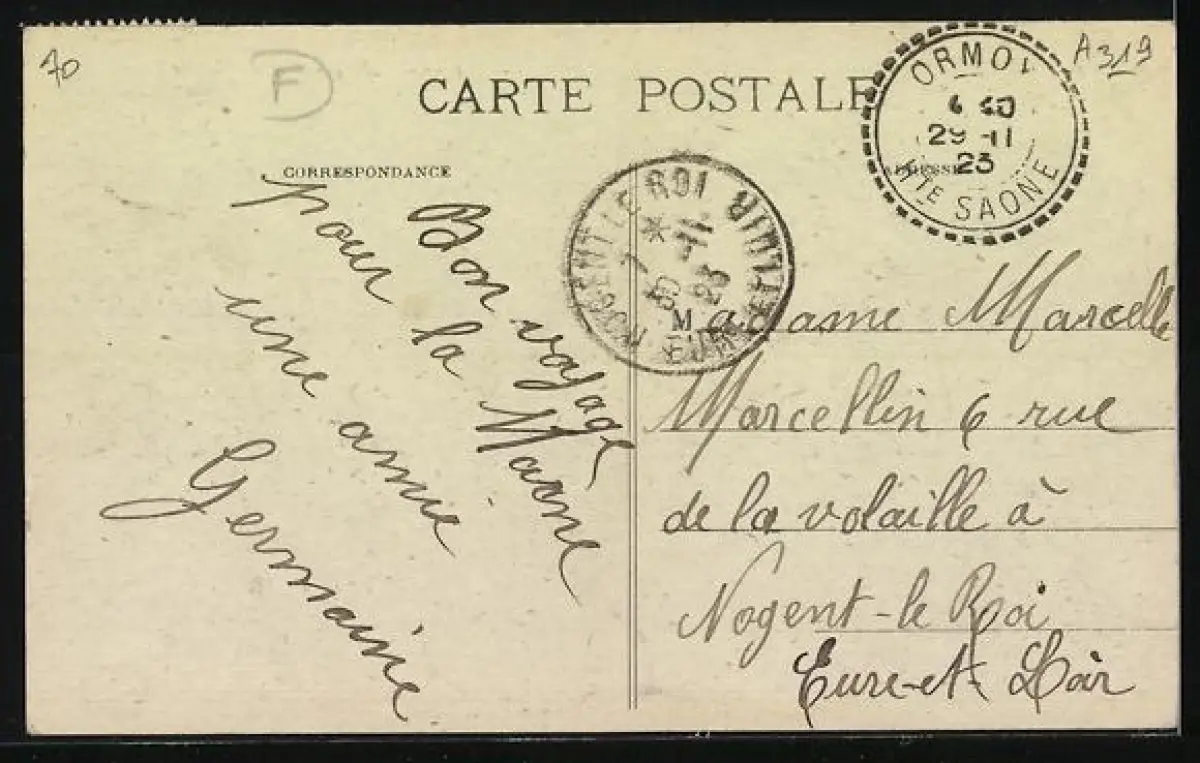 70
F
A319
CARTE POSTALE
ORMOY
29-11
23
HTE SAONE
CORRESPONDANCE
ADRESSE
NOGENT LE ROI
EURE
Bon voyage
pour la Marne
une amie
Germaine
Madame Marcelle
Marcellin 6 rue
de la volaille à
Nogent-le Roi
Eure-et-Loir